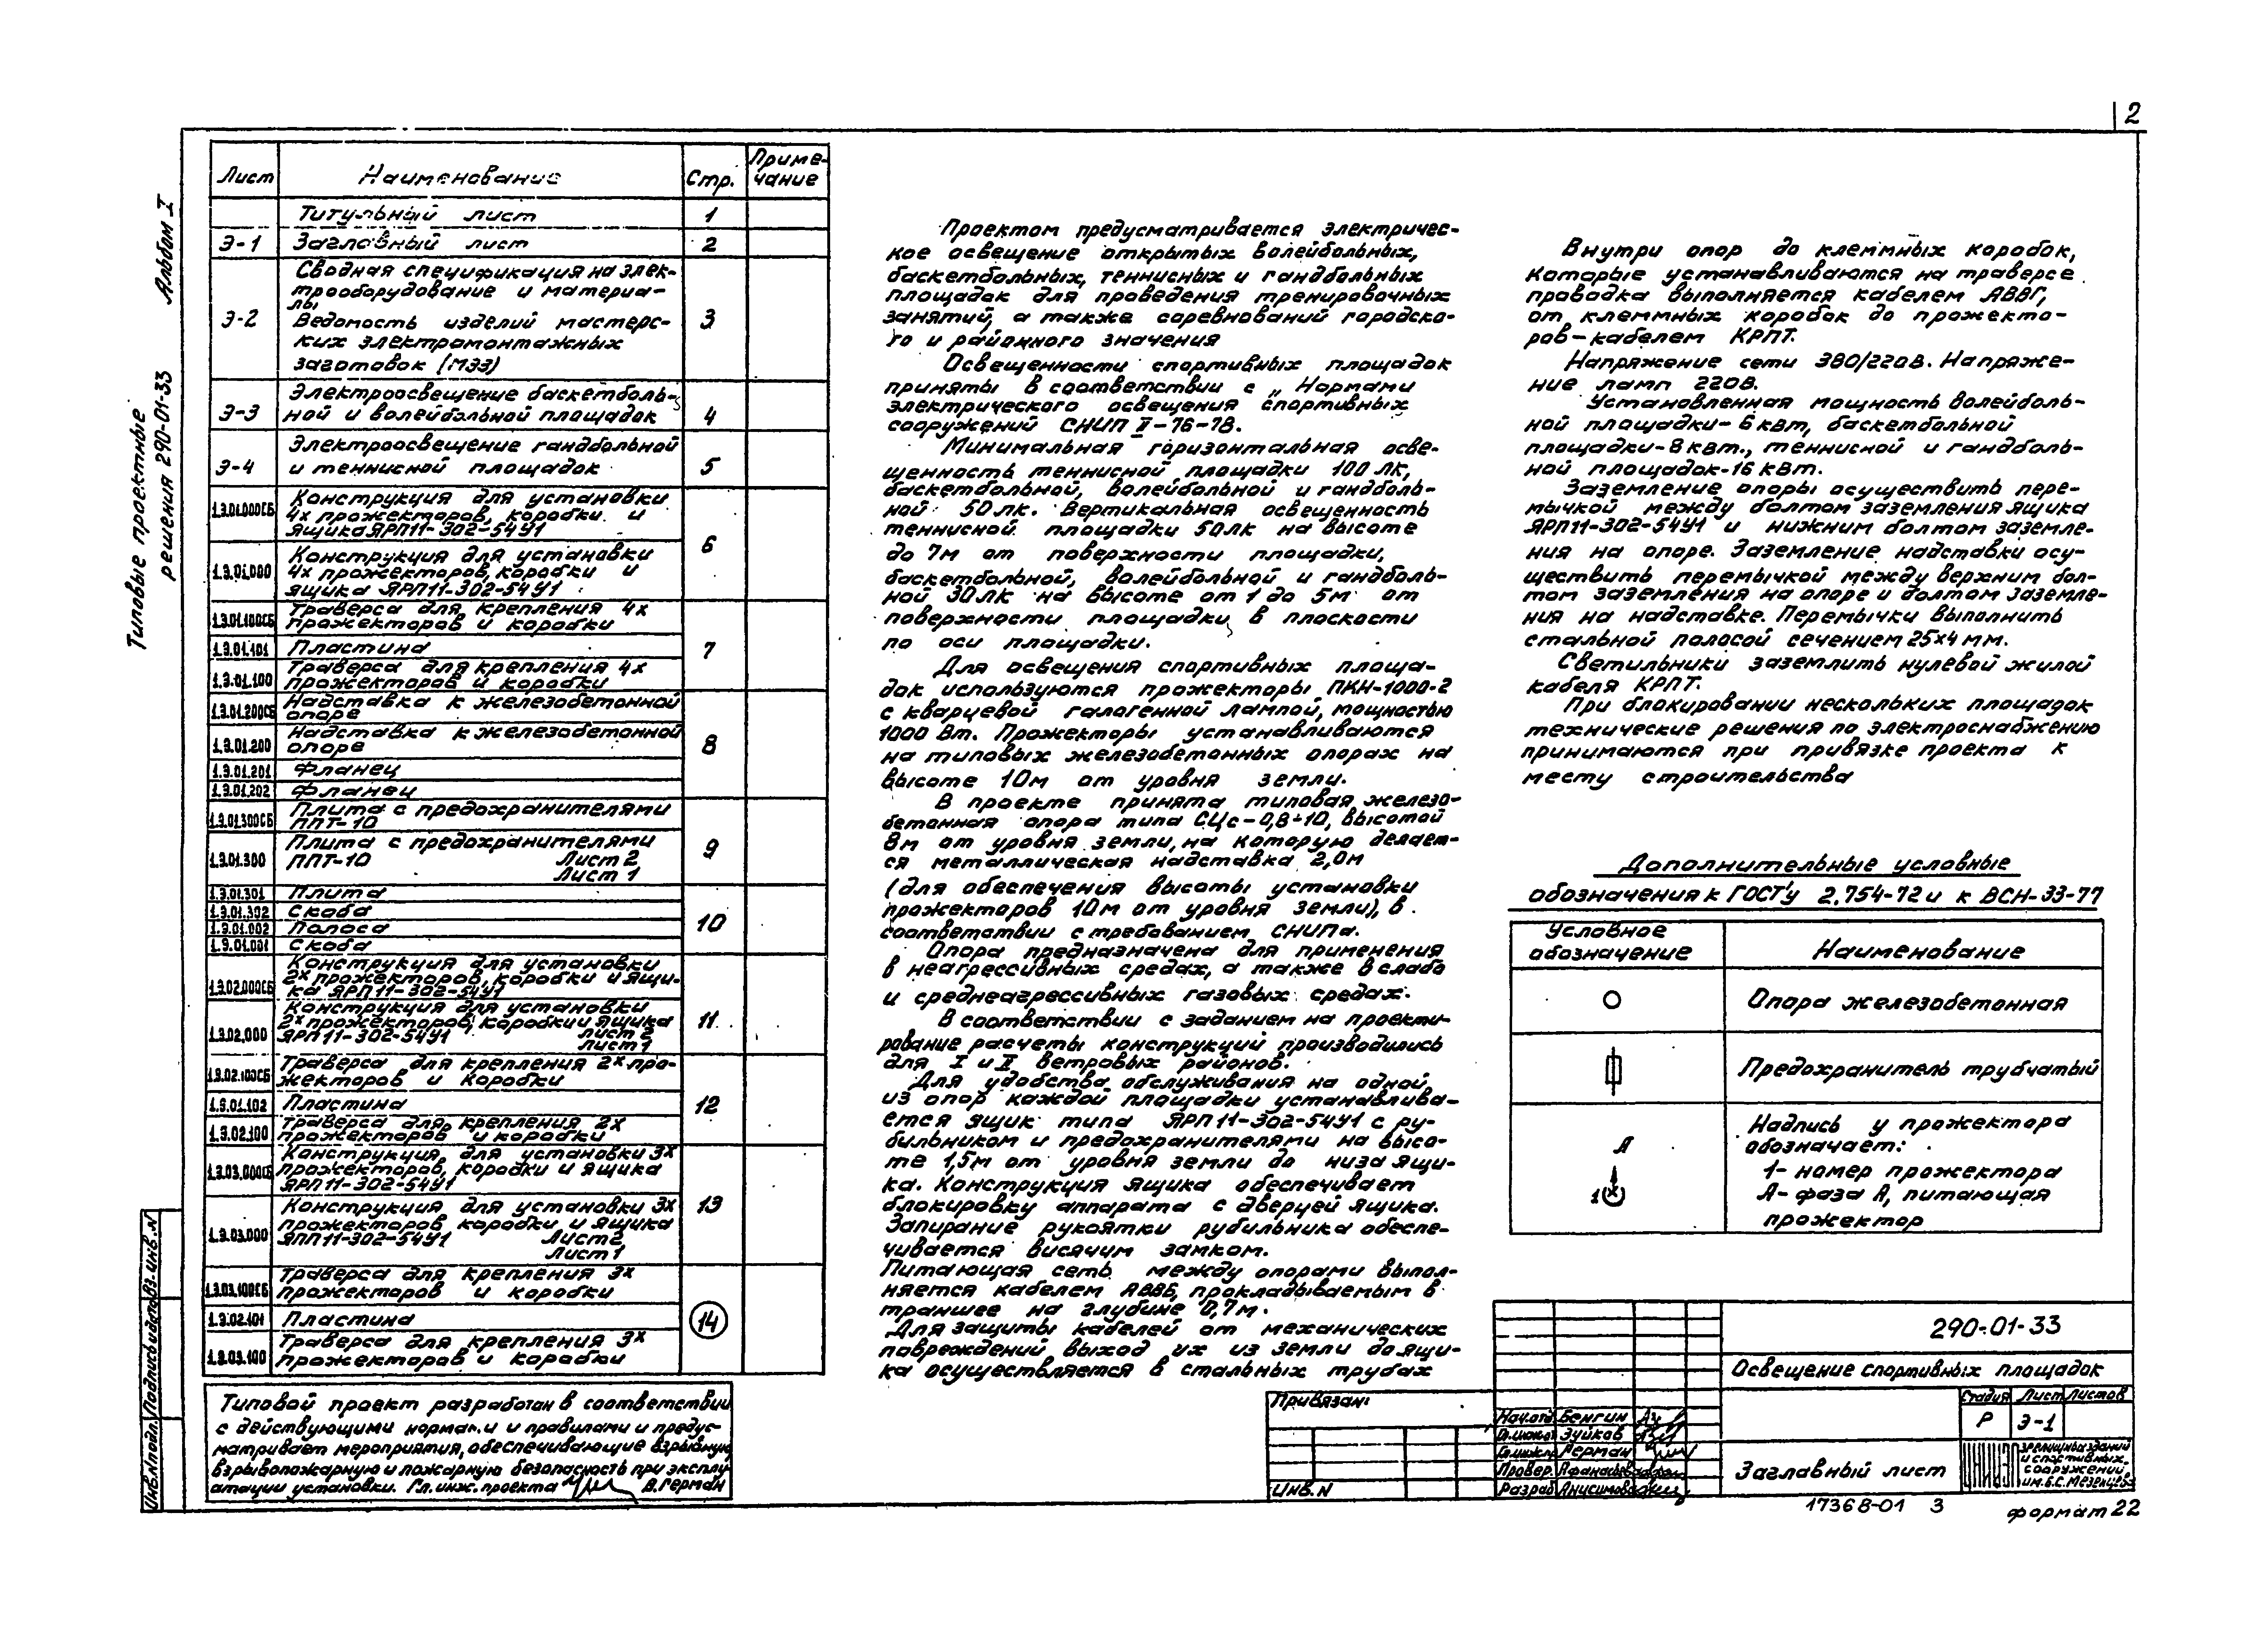 2
Типовые проектные
решения 290-01-33 Альбом I
Лист Наименование Стр. Приме-
чание
Титульный лист 1
Э-1 Заглавный лист 2
Э-2 Сводная спецификация на элек-
трооборудование и материа-
лы
Ведомость изделий мастерс-
ких электромонтажных
заготовок (МЭЗ) 3
Э-3 Электроосвещение баскетболь-
ной и волейбольной площадок 4
Э-4 Электроосвещение гандбольной
и теннисной площадок 5
1.Э.01.000СБ Конструкция для установки
4х прожекторов, коробки и
ящика ЯРП11-302-54У1 6
1.Э.01.000 Конструкция для установки
4х прожекторов, коробки и
ящика ЯРП11-302-54У1
1.Э.01.100СБ Траверса для крепления 4х
прожекторов и коробки 7
1.Э.01.101 Пластина
1.Э.01.100 Траверса для крепления 4х
прожекторов и коробки
1.Э.01.200СБ Надставка к железобетонной
опоре 8
1.Э.01.200 Надставка к железобетонной
опоре
1.Э.01.201 Фланец
1.Э.01.202 Фланец
1.Э.01.300СБ Плита с предохранителями
ППТ-10 9
1.Э.01.300 Плита с предохранителями
ППТ-10 Лист 2
Лист 1
1.Э.01.301 Плита 10
1.Э.01.302 Скоба
1.Э.01.002 Полоса
1.Э.01.001 Скоба
1.Э.02.000СБ Конструкция для установки
2х прожекторов, коробки и ящи-
ка ЯРП11-302-54У1 11
1.Э.02.000 Конструкция для установки
2х прожекторов, коробки и ящика
ЯРП11-302-54У1 Лист 2
Лист 1
1.Э.02.100СБ Траверса для крепления 2х про-
жекторов и коробки 12
1.Э.01.102 Пластина
1.Э.02.100 Траверса для крепления 2х
прожекторов и коробки
1.Э.03.000СБ Конструкция для установки 3х
прожекторов, коробки и ящика
ЯРП11-302-54У1 13
1.Э.03.000 Конструкция для установки 3х
прожекторов, коробки и ящика
ЯРП11-302-54У1 Лист 2
Лист 1
1.Э.03.100СБ Траверса для крепления 3х
прожекторов и коробки 14
1.Э.02.101 Пластина
1.Э.03.100 Траверса для крепления 3х
прожекторов и коробки
Типовой проект разработан в соответствии
с действующими нормами и правилами и предус-
матривает мероприятия, обеспечивающие взрывную,
взрывопожарную и пожарную безопасность при эксплу-
атации установки. Гл. инж. проекта В. Герман
Проектом предусматривается электричес-
кое освещение открытых волейбольных,
баскетбольных, теннисных и гандбольных
площадок для проведения тренировочных
занятий, а также соревнований городско-
го и районного значения
Освещенности спортивных площадок
приняты в соответствии с „Нормами
электрического освещения спортивных
сооружений СНИП II-76-78.
Минимальная горизонтальная осве-
щенность теннисной площадки 100 лк,
баскетбольной, волейбольной и гандболь-
ной 50 лк. Вертикальная освещенность
теннисной площадки 50лк на высоте
до 7м от поверхности площадки,
баскетбольной, волейбольной и гандболь-
ной 30лк на высоте от 1 до 5м от
поверхности площадки, в плоскости
по оси площадки.
Для освещения спортивных площа-
док используются прожекторы ПКН-1000-2
с кварцевой галогенной лампой, мощностью
1000 Вт. Прожекторы устанавливаются
на типовых железобетонных опорах на
высоте 10м от уровня земли.
В проекте принята типовая железо-
бетонная опора типа СЦс-0,8-10, высотой
8м от уровня земли, на которую делает-
ся металлическая надставка 2,0м
(для обеспечения высоты установки
прожекторов 10м от уровня земли), в
соответствии с требованием СНИПа.
Опора предназначена для применения
в неагрессивных средах, а также в слабо
и среднеагрессивных газовых средах.
В соответствии с заданием на проекти-
рование расчеты конструкций производились
для I и II ветровых районов.
Для удобства обслуживания на одной
из опор каждой площадки устанавлива-
ется ящик типа ЯРП11-302-54У1 с ру-
бильником и предохранителями на высо-
те 1,5м от уровня земли до низа ящи-
ка. Конструкция ящика обеспечивает
блокировку аппарата с дверцей ящика.
Запирание рукоятки рубильника обеспе-
чивается висячим замком.
Питающая сеть между опорами выпол-
няется кабелем АВВБ, прокладываемым в
траншее на глубине 0,7м.
Для защиты кабелей от механических
повреждений выход их из земли до ящи-
ка осуществляется в стальных трубах
Внутри опор до клеммных коробок,
которые устанавливаются на траверсе
проводка выполняется кабелем АВВГ,
от клеммных коробок до прожекто-
ров-кабелем КРПТ.
Напряжение сети 380/220В. Напряже-
ние ламп 220В.
Установленная мощность волейболь-
ной площадки- 6 квт, баскетбольной
площадки-8 квт., теннисной и гандболь-
ной площадок-16 квт.
Заземление опоры осуществить пере-
мычкой между болтом заземления ящика
ЯРП11-302-54У1 и нижним болтом заземле-
ния на опоре. Заземление надставки осу-
ществить перемычкой между верхним бол-
том заземления на опоре и болтом заземле-
ния на надставке. Перемычки выполнить
стальной полосой сечением 25х4 мм.
Светильники заземлить нулевой жилой
кабеля КРПТ.
При блокировании нескольких площадок
технические решения по электроснабжению
принимаются при привязке проекта к
месту строительства
Дополнительные условные
обозначения к ГОСТ'у 2.754-72 и к ВСН-33-77
Условное
обозначение Наименование
Опора железобетонная
Предохранитель трубчатый
А
1
Надпись у прожектора
обозначает:
1- номер прожектора
А- фаза А, питающая
прожектор
290-01-33
Освещение спортивных площадок
Стадия Лист Листов
Р Э-1
Заглавный лист
зрелищных зданий
и спортивных
сооружений
им. Б.С. Мезенцева
Привязан:
ИНВ. N
Нач.отд Бенгин
Гл.инж.от Зуйков
Гл.инж.пр Герман
Провер. Афанасьева
Разраб Анисимова
Инв.Nподл. Подпись и дата Вз. инв. N
17368-01 3
формат 22